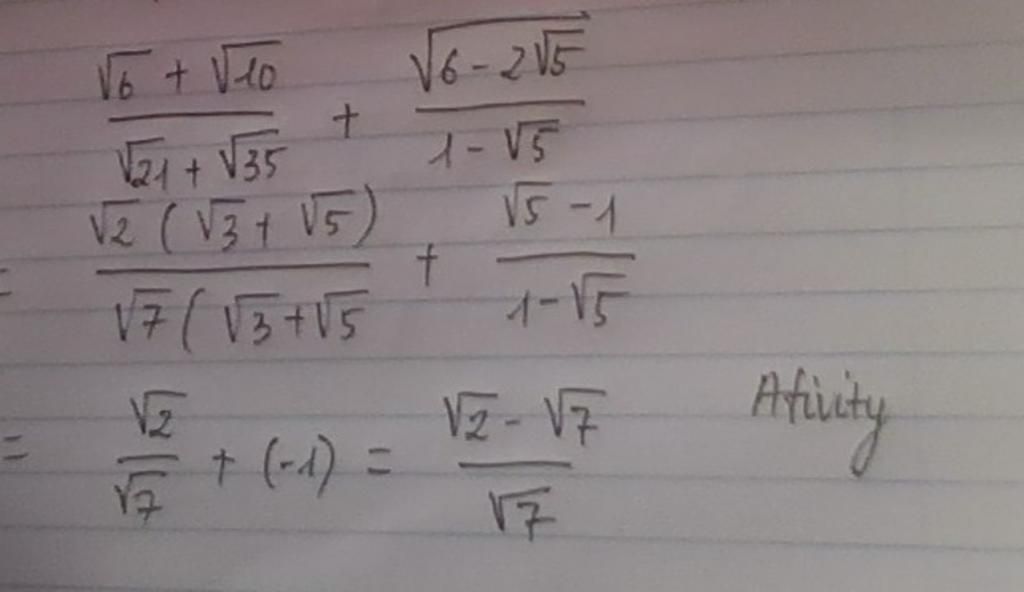 (√6 + √10)/(√21 + √35) + √(6 - 2√5)/(1 - √5)
= √2 (√3 + √5)/√7 (√3 + √5 + (√5 - 1)/(1 - √5)
= √2/√7 + (-1) = (√2 - √7)/√7 Afivity